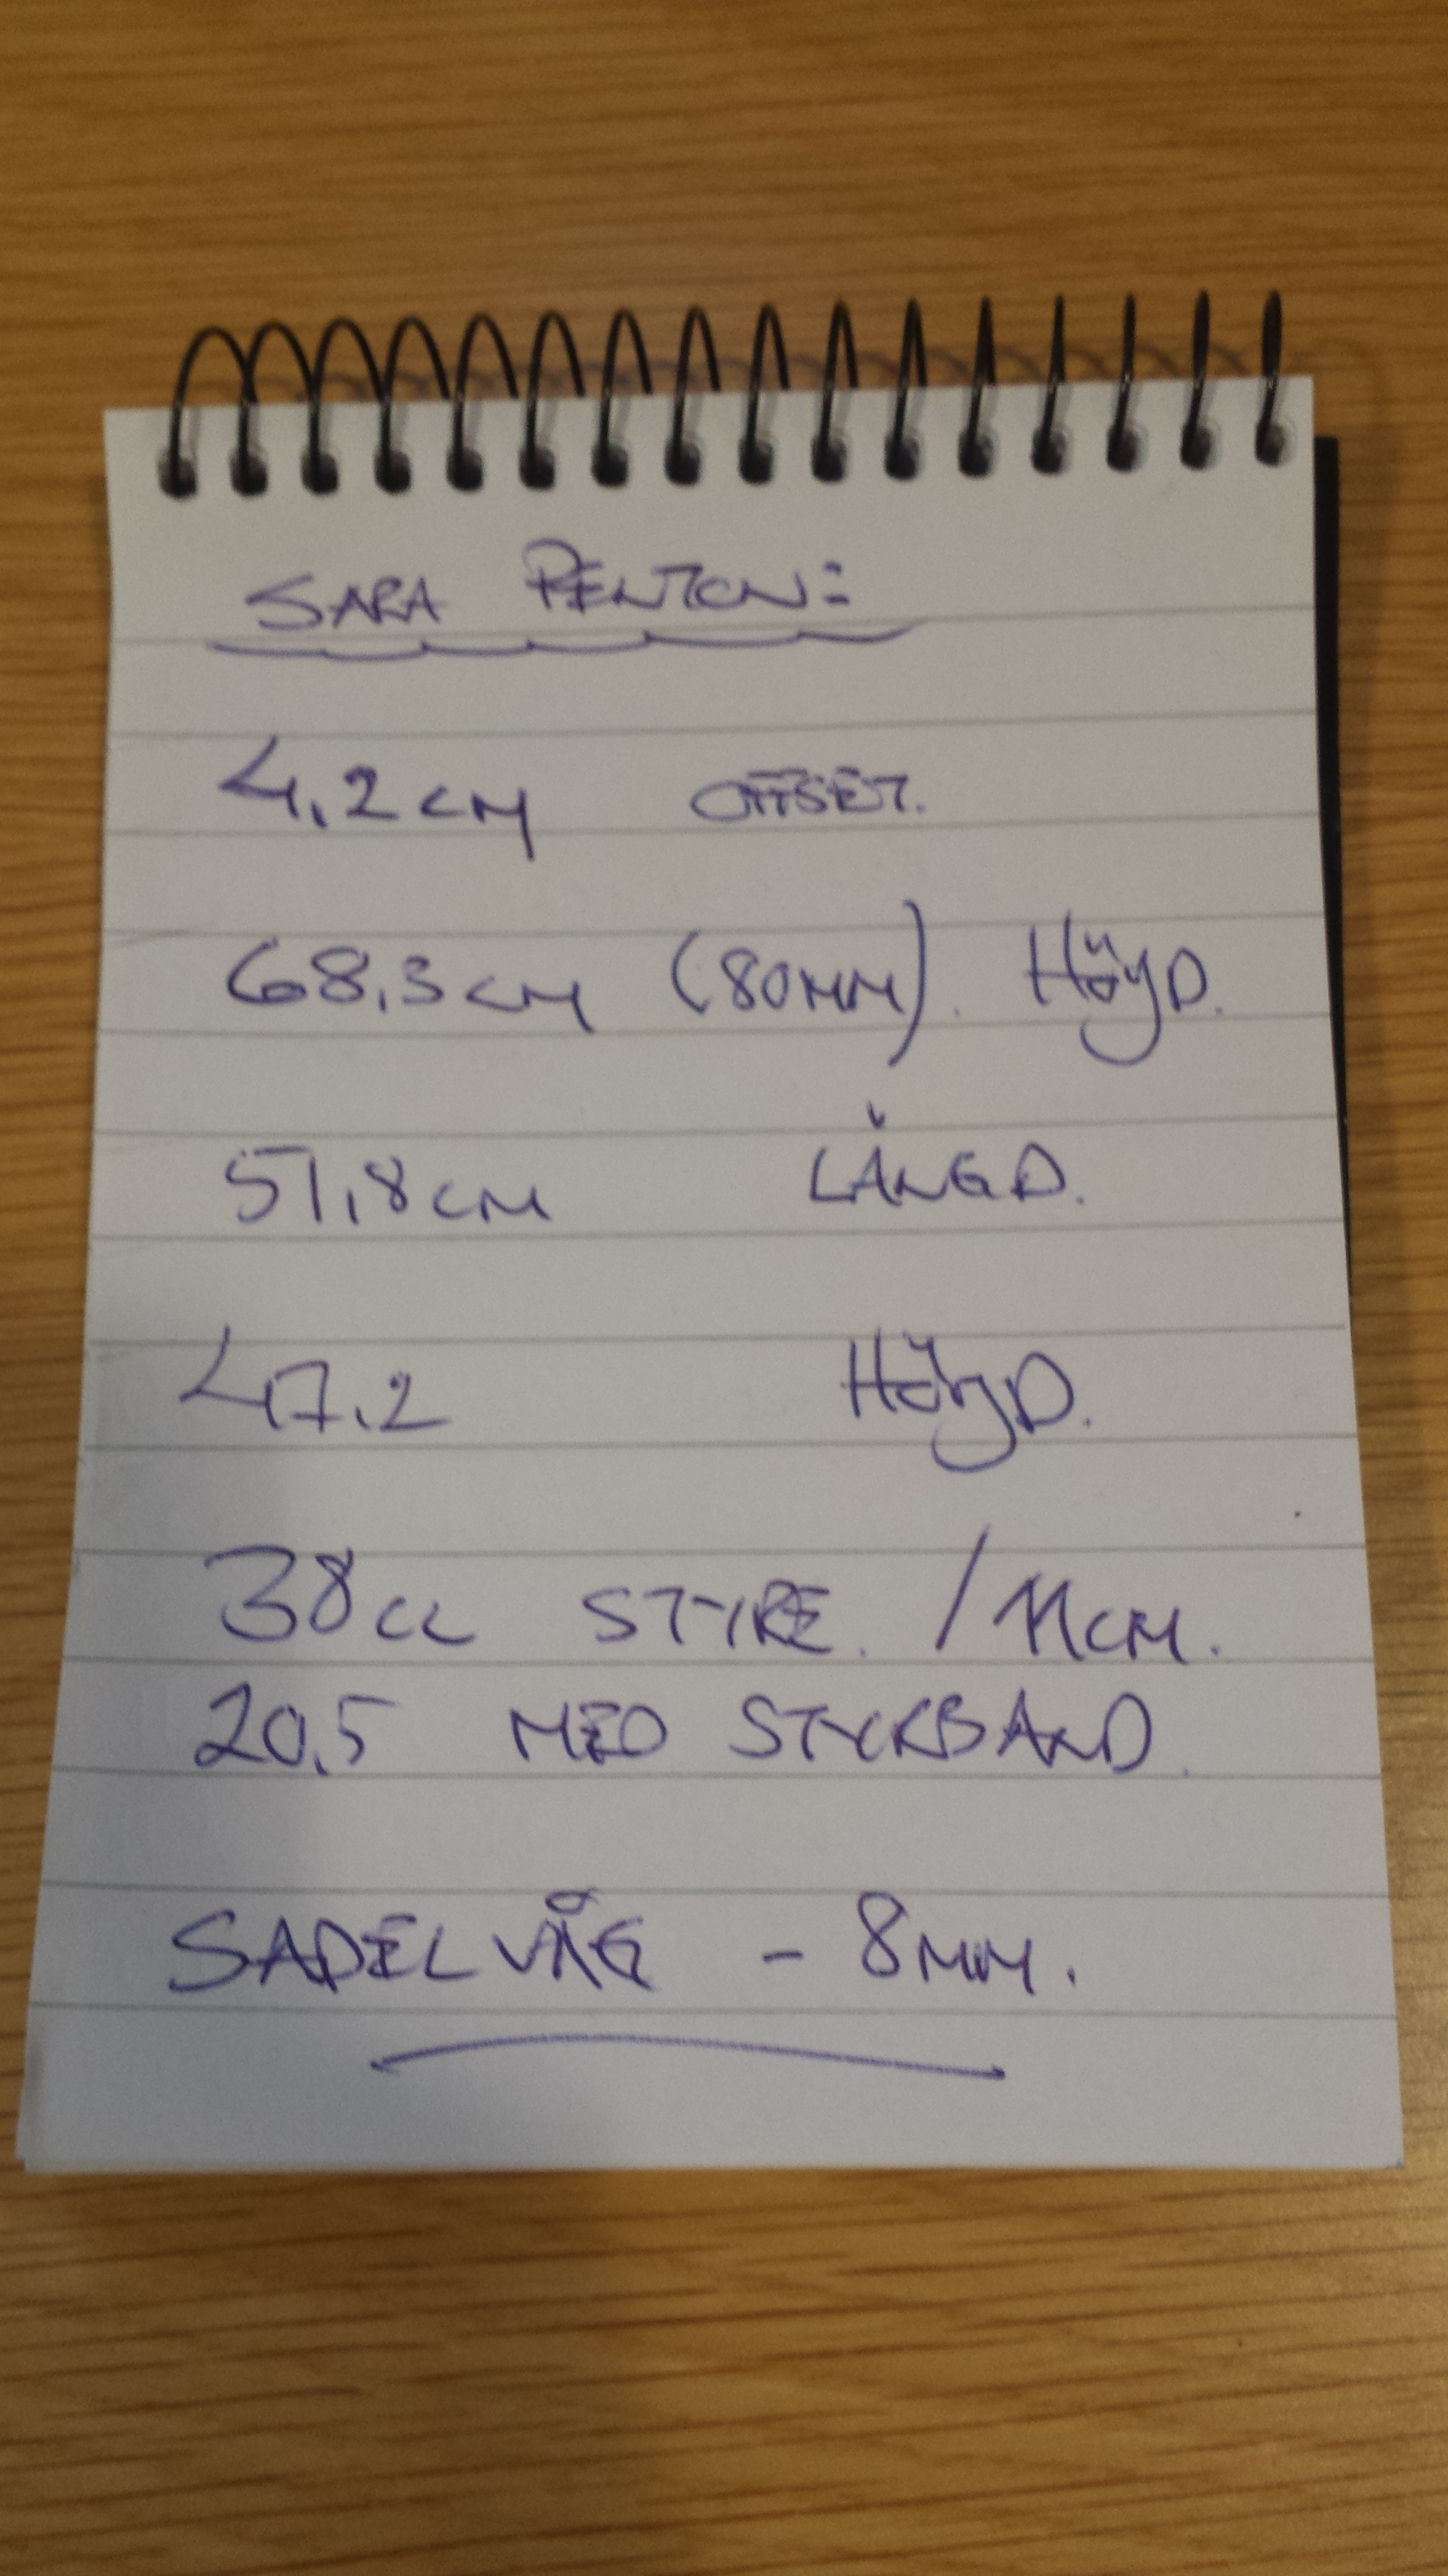 SARA PENTON:
4,2 CM OFFSET.
68,3 CM (80MM). HÖJD.
51,8 CM LÄNGD.
47,2 HÖJD.
38 CC STYRE. / 11 CM.
20,5 MED STYRBAND.
SADELVÅG - 8MM.